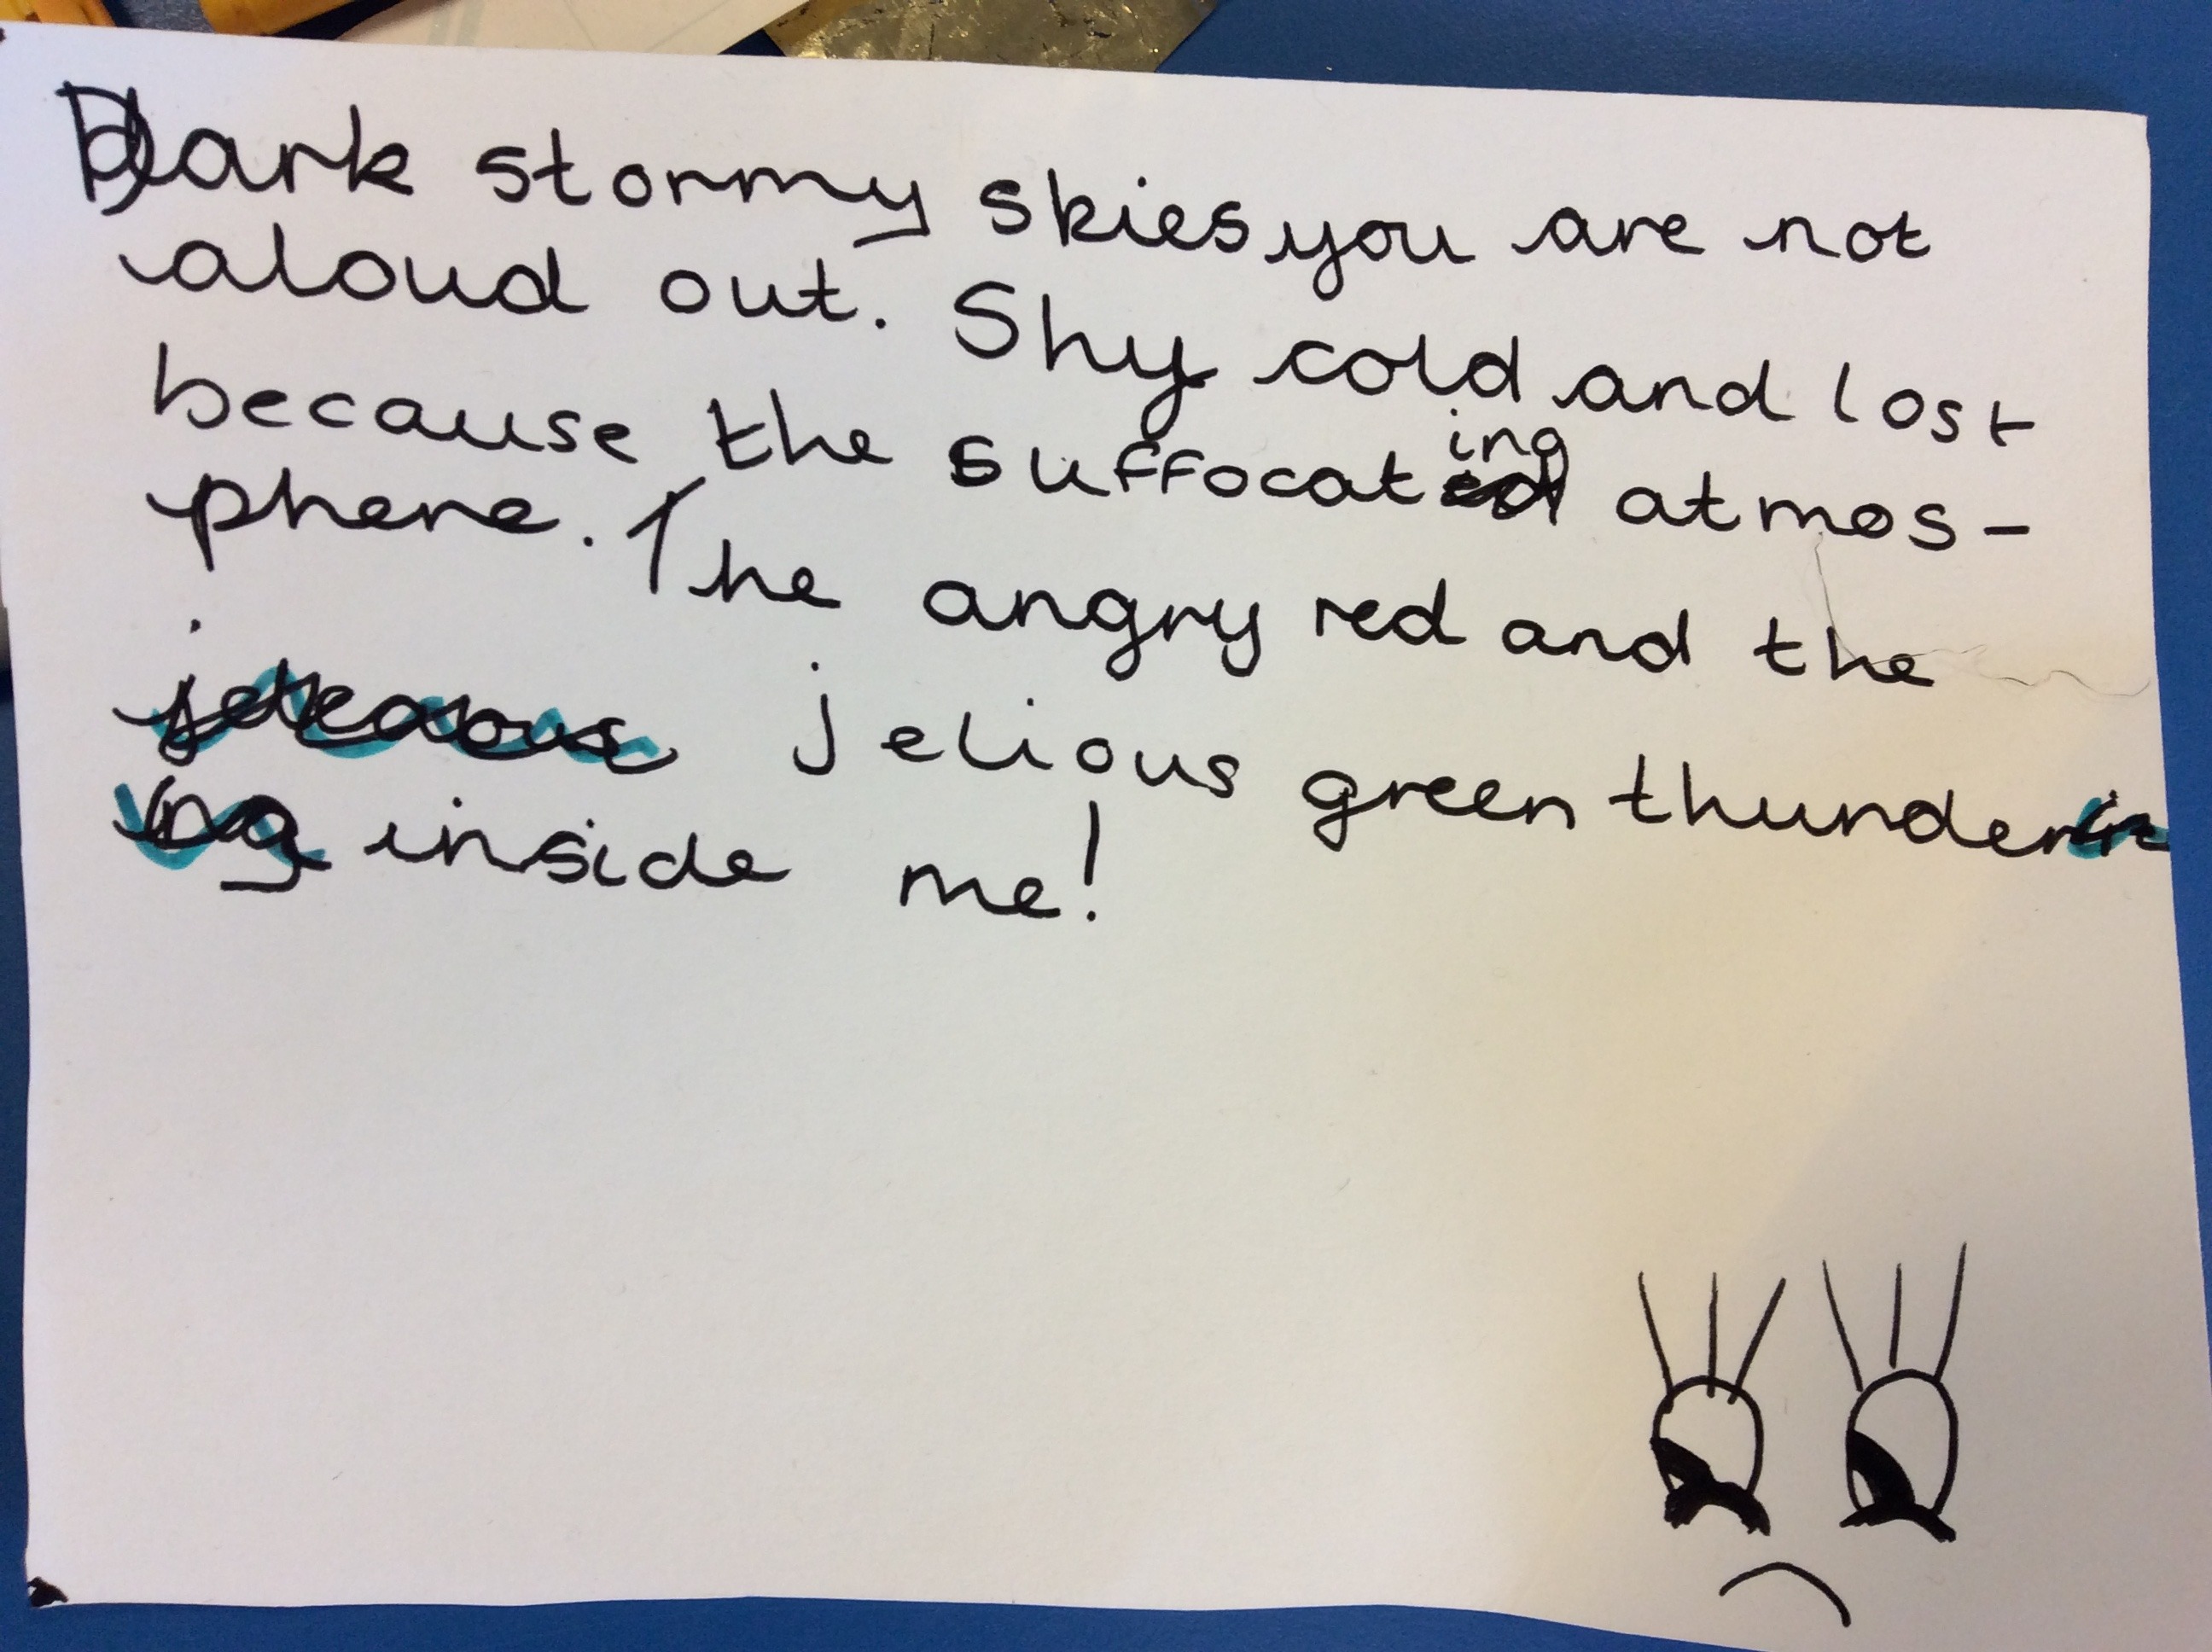 Dark stormy skies you are not
aloud out. Shy cold and lost
because the suffocating atmos-
phere. The angry red and the
jelious green thunder
inside me!